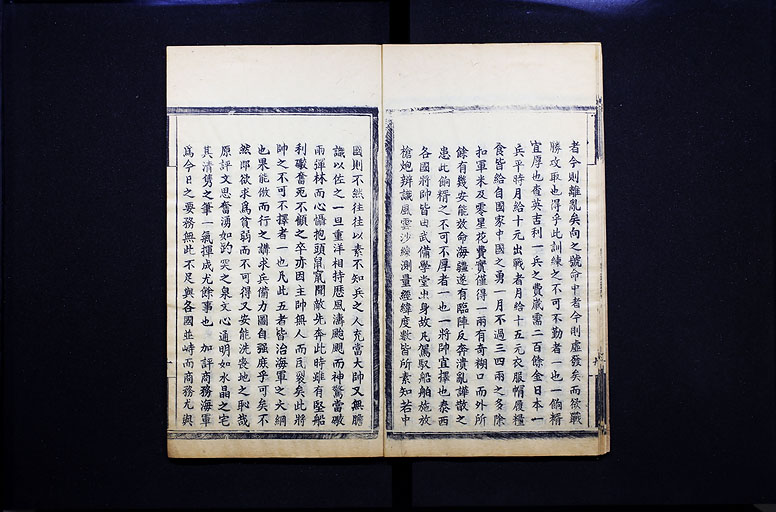 者今則離亂矣向之號命中者今則虛發矣而欲戰
勝攻取也得乎此訓練之不可不勤者一也一餉糈
宜厚也查英吉利一兵之費歲需二百餘金日本一
兵平時月給十元出戰者月給十五元衣服帽履糧
食皆給自國家中國之勇一月不過三四兩之多除
扣軍米及零星花費實僅得一兩有奇糊口而外所
餘有幾安能效命海疆遂有臨陣反奔潰亂譁散之
患此餉糈之不可不厚者一也一將帥宜擇也泰西
各國將帥皆由武備學堂出身故凡駕馭船舶施放
槍炮辨識風雲沙線測量經緯度數皆所素知若中
國則不然往往以素不知兵之人充當大帥又無膽
識以佐之一旦重洋相持歷風濤颱颶而神驚當礮
雨彈林而心懾抱頭鼠竄聞敵先奔此時雖有堅船
利礮奮死不顧之卒亦因主帥無人而瓦裂矣此將
帥之不可不擇者一也凡此五者皆治海軍之大綱
也果能倣而行之講求兵備力圖自强庶乎可矣不
然即欲求為貧弱而不可得又安能洗喪地之恥哉
原評文思奮湧如的突之泉文心通明如水晶之宅
其清雋之筆一氣揮成尤餘事也　加評商務海軍
為今日之要務無此不足與各國並峙而商務尤與